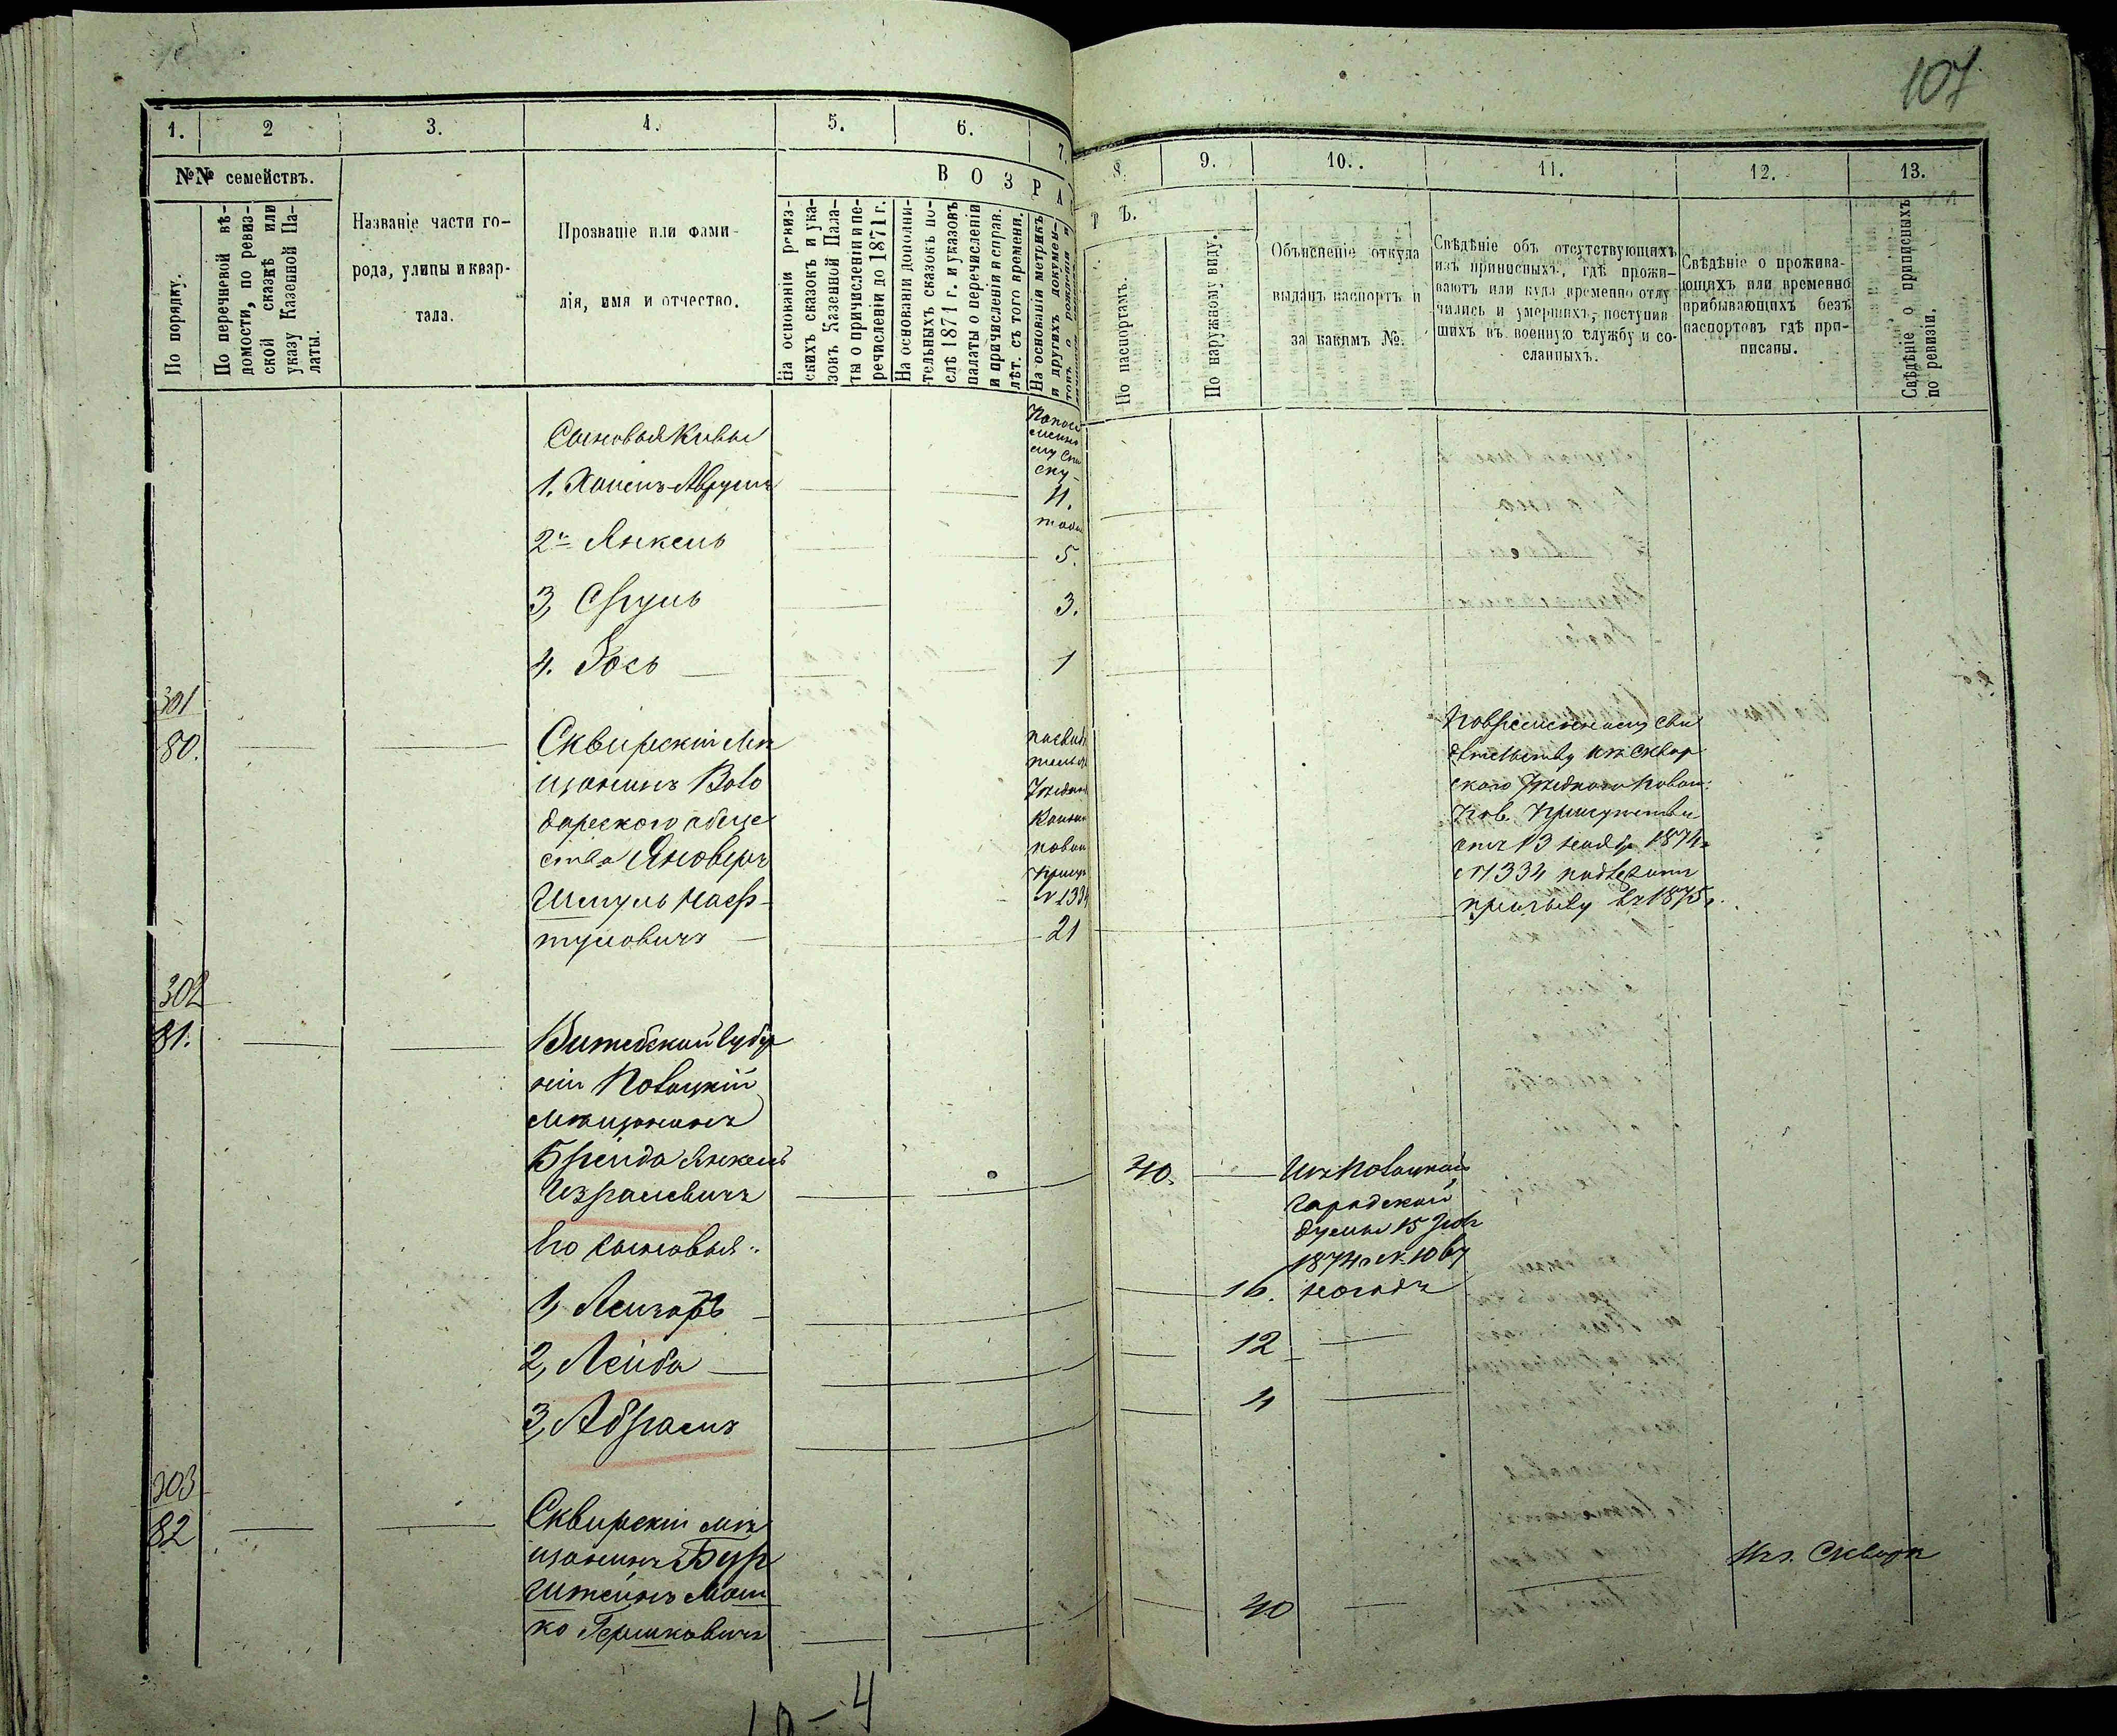 107
1. 2 3. 4. 5. 6. 7.
8. 9. 10. 11. 12. 13.
№№ семействъ.
По порядку.
По перечневой вѣ-
домости, по ревиз-
ской сказкѣ или
указу Казенной Па-
латы.
Названіе части го-
рода, улицы и квар-
тала.
Прозваніе или фами-
лія, имя и отчество.
В О З Р А
Т Ъ.
На основаніи ревиз-
скихъ сказокъ и ука-
зовъ Казенной Пала-
ты о причисленіи и пе-
речисленіи до 1871 г.
На основаніи дополни-
тельныхъ сказокъ по-
слѣ 1871 г. и указовъ
палаты о перечисленіи
и причисленіи и справ.
лѣт. съ того времени.
На основаніи метрикъ
и другихъ докумен-
товъ о рожденіи и
По паспортамъ.
По наружному виду.
Объясненіе откуда
выданъ паспортъ и
за какимъ №.
Свѣдѣніе объ отсутствующихъ
изъ приписныхъ, гдѣ прожи-
ваютъ или куда временно отлу
чились и умершихъ, поступив
шихъ въ военную службу и со-
сланныхъ.
Свѣдѣніе о прожива-
ющихъ или временно
прибывающихъ безъ
паспортовъ гдѣ при-
писаны.
Свѣдѣніе о приписныхъ
по ревизіи.
Сыновья Кивы
1. Хаимъ Аврумъ
11.
2. Янкель
5.
3, Сруль
3.
4. Іось
1
301
80.
Сквирскій Мѣ
щанинъ Воло
дарского обще
ства Яноверъ
Шмуль
туловичъ
21
По временному сви
дѣтельству изъ Сквир
ского Уѣздного по воин.
пов. Присутствія
отъ 13 1874г
№1334 подлежитъ
призыву въ 1875г.
302
81.
Витебской Губер
ніи Полоцкій
мѣщанинъ
Брейда Янкель
Израилевичъ
40.
Изъ Полоцкой
городской
думы 15
1874г №
Его сыновья:
1, Лейзоръ
16. на годъ
2, Лейба
12
3, Абрамъ
4
303
82
Сквирскій мѣ
щанинъ Бур
штейнъ Мош
ко Гершковичъ
40
Изъ Сквиры
10-4